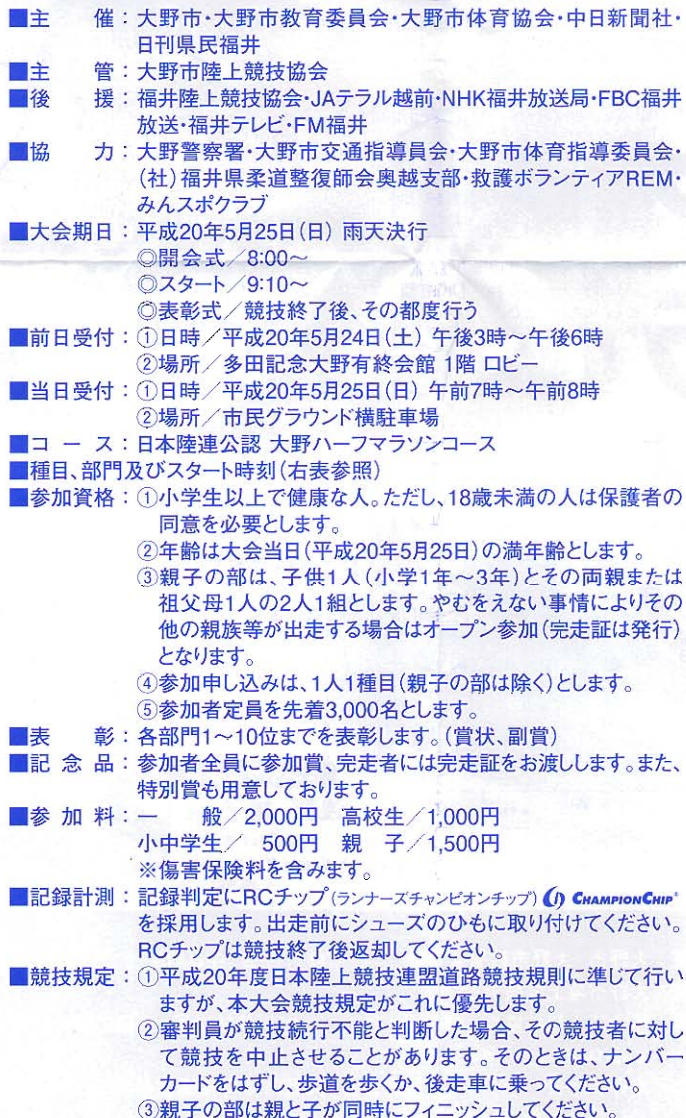 ■主　　催：大野市・大野市教育委員会・大野市体育協会・中日新聞社・
日刊県民福井
■主　　管：大野市陸上競技協会
■後　　援：福井陸上競技協会・JAテラル越前・NHK福井放送局・FBC福井
放送・福井テレビ・FM福井
■協　　力：大野警察署・大野市交通指導員会・大野市体育指導委員会・
(社)福井県柔道整復師会奥越支部・救護ボランティアREM・
みんスポクラブ
■大会期日：平成20年5月25日(日) 雨天決行
◎開会式／8:00～
◎スタート／9:10～
◎表彰式／競技終了後、その都度行う
■前日受付：①日時／平成20年5月24日(土) 午後3時～午後6時
②場所／多田記念大野有終会館 1階 ロビー
■当日受付：①日時／平成20年5月25日(日) 午前7時～午前8時
②場所／市民グラウンド横駐車場
■コ ー ス：日本陸連公認 大野ハーフマラソンコース
■種目、部門及びスタート時刻(右表参照)
■参加資格：①小学生以上で健康な人。ただし、18歳未満の人は保護者の
同意を必要とします。
②年齢は大会当日(平成20年5月25日)の満年齢とします。
③親子の部は、子供1人(小学1年～3年)とその両親または
祖父母1人の2人1組とします。やむをえない事情によりその
他の親族等が出走する場合はオープン参加(完走証は発行)
となります。
④参加申し込みは、1人1種目(親子の部は除く)とします。
⑤参加者定員を先着3,000名とします。
■表　　彰：各部門1～10位までを表彰します。(賞状、副賞)
■記 念 品：参加者全員に参加賞、完走者には完走証をお渡しします。また、
特別賞も用意しております。
■参 加 料：一　　般／2,000円　高校生／1,000円
小中学生／　500円　親　子／1,500円
※傷害保険料を含みます。
■記録計測：記録判定にRCチップ(ランナーズチャンピオンチップ) CHAMPIONCHIP®
を採用します。出走前にシューズのひもに取り付けてください。
RCチップは競技終了後返却してください。
■競技規定：①平成20年度日本陸上競技連盟道路競技規則に準じて行い
ますが、本大会競技規定がこれに優先します。
②審判員が競技続行不能と判断した場合、その競技者に対し
て競技を中止させることがあります。そのときは、ナンバー
カードをはずし、歩道を歩くか、後走車に乗ってください。
③親子の部は親と子が同時にフィニッシュしてください。